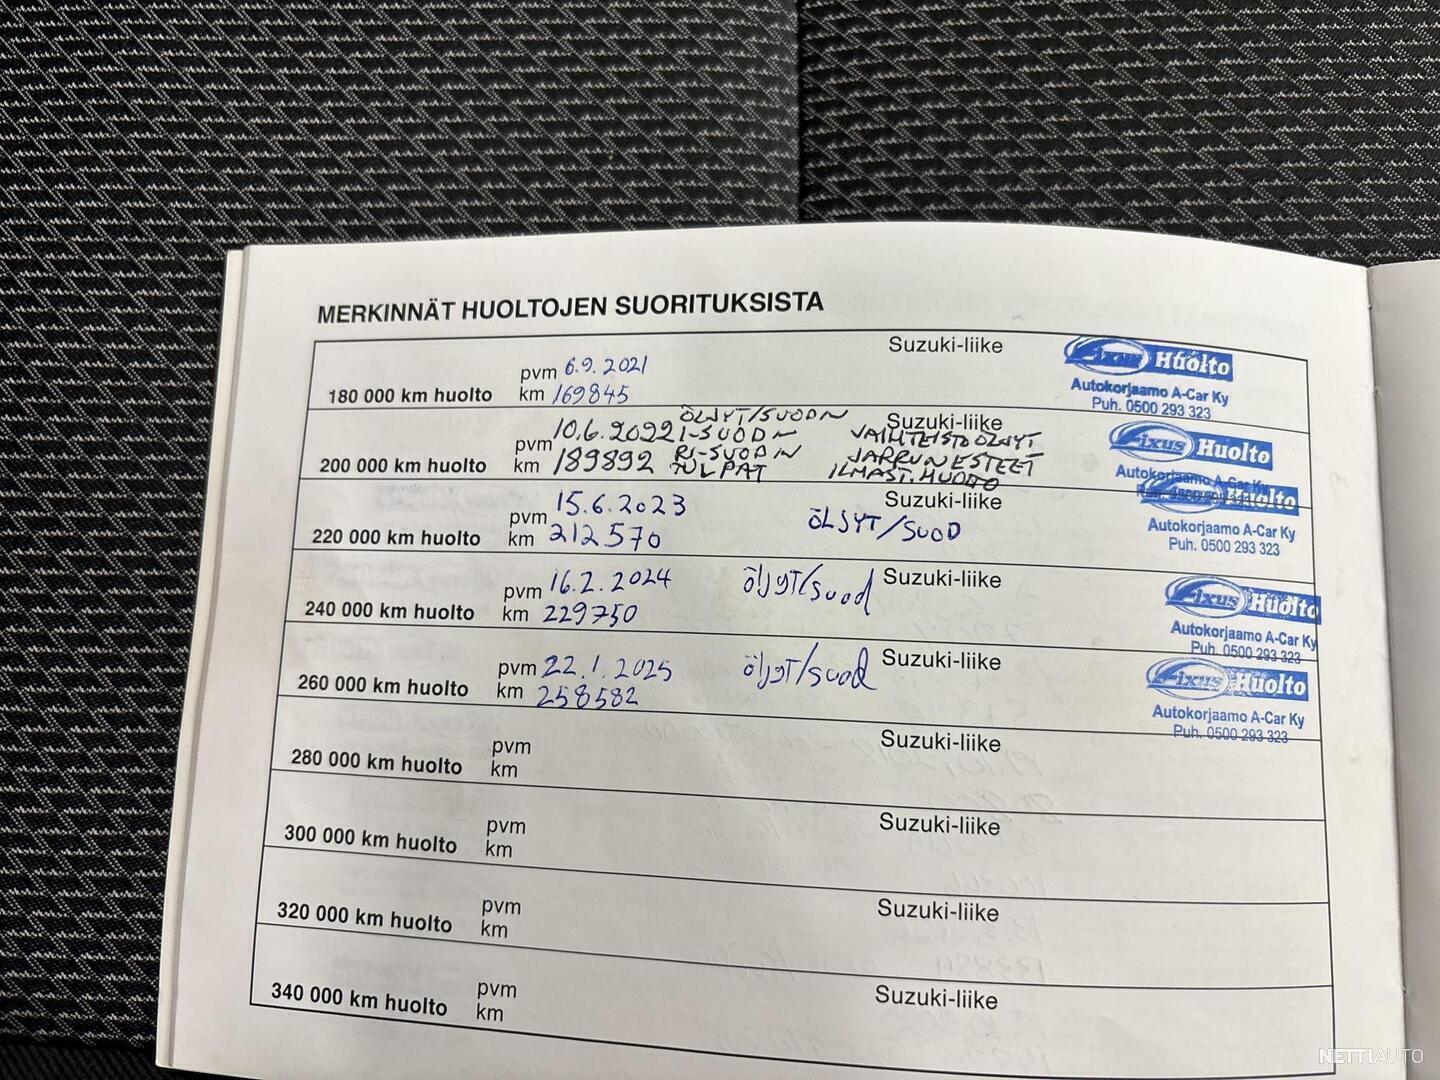 MERKINNÄT HUOLTOJEN SUORITUKSISTA
180 000 km huolto
pvm 6.9.2021
km 169845
Suzuki-liike
Fixus Huolto
Autokorjaamo A-Car Ky
Puh. 0500 293 323
200 000 km huolto
pvm 10.6.2022
km 189892
ÖLJYT/SUODN
I-SUODN
RI-SUODIN
TULPAT
Suzuki-liike
VAIHTEISTOÖLJYT
JARRUNESTEET
ILMAST. HUOLTO
Fixus Huolto
Autokorjaamo A-Car Ky
220 000 km huolto
pvm 15.6.2023
km 212570
Suzuki-liike
ÖLJYT/SUOD
Huolto
Autokorjaamo A-Car Ky
Puh. 0500 293 323
240 000 km huolto
pvm 16.2.2024
km 229750
öljyT/suod
Suzuki-liike
Fixus Huolto
Autokorjaamo A-Car Ky
Puh. 0500 293 323
260 000 km huolto
pvm 22.1.2025
km 258582
öljyT/suod
Suzuki-liike
Fixus Huolto
Autokorjaamo A-Car Ky
Puh. 0500 293 323
280 000 km huolto
pvm
km
Suzuki-liike
300 000 km huolto
pvm
km
Suzuki-liike
320 000 km huolto
pvm
km
Suzuki-liike
340 000 km huolto
pvm
km
Suzuki-liike
NETTIAUTO